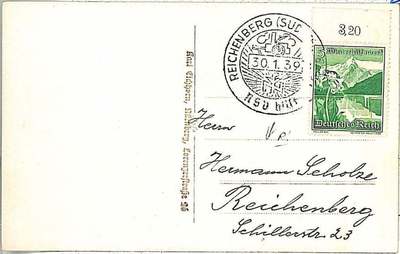 3,20
REICHENBERG (SUD
30.1.39
NSV hilft
Winterhilfswerk
Deutsches Reich
Herrn
Hermann Scholze
Reichenberg
Schillerstr. 23